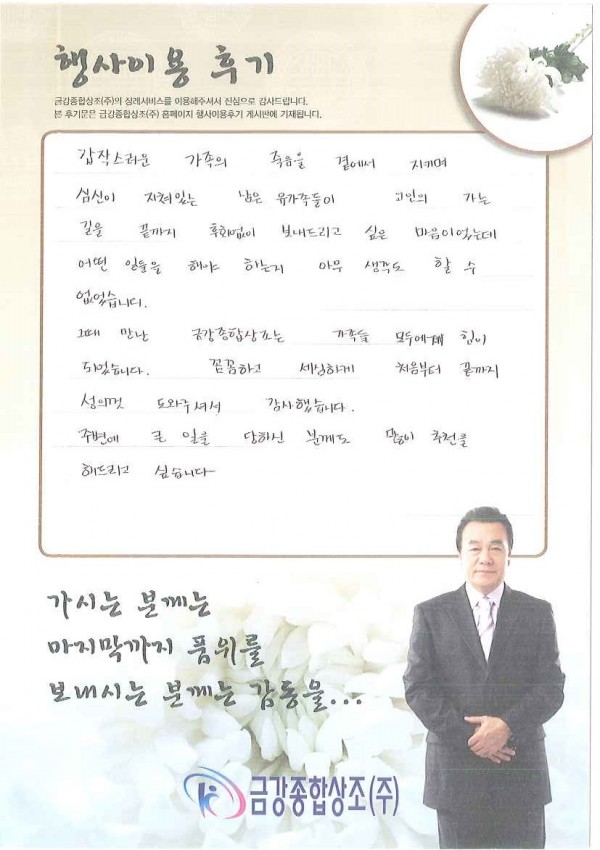 행사이용 후기
금강종합상조(주)의 장례서비스를 이용해주셔서 진심으로 감사드립니다.
본 후기문은 금강종합상조(주) 홈페이지 행사이용후기 게시판에 기재됩니다.
갑작스러운 가족의 죽음을 곁에서 지키며
심신이 지쳐있는 남은 유가족들이 고인의 가는
길을 끝까지 후회없이 보내드리고 싶은 마음이었는데
어떤 일들을 해야 하는지 아무 생각도 할 수
없었습니다.
그때 만난 금강종합상조는 가족들 모두에게 힘이
되었습니다. 꼼꼼하고 세심하게 처음부터 끝까지
성의껏 도와주셔서 감사했습니다.
주변에 큰 일을 당하신 분께도 많이 추천을
해드리고 싶습니다
가시는 분께는
마지막까지 품위를
보내시는 분께는 감동을...
금강종합상조(주)